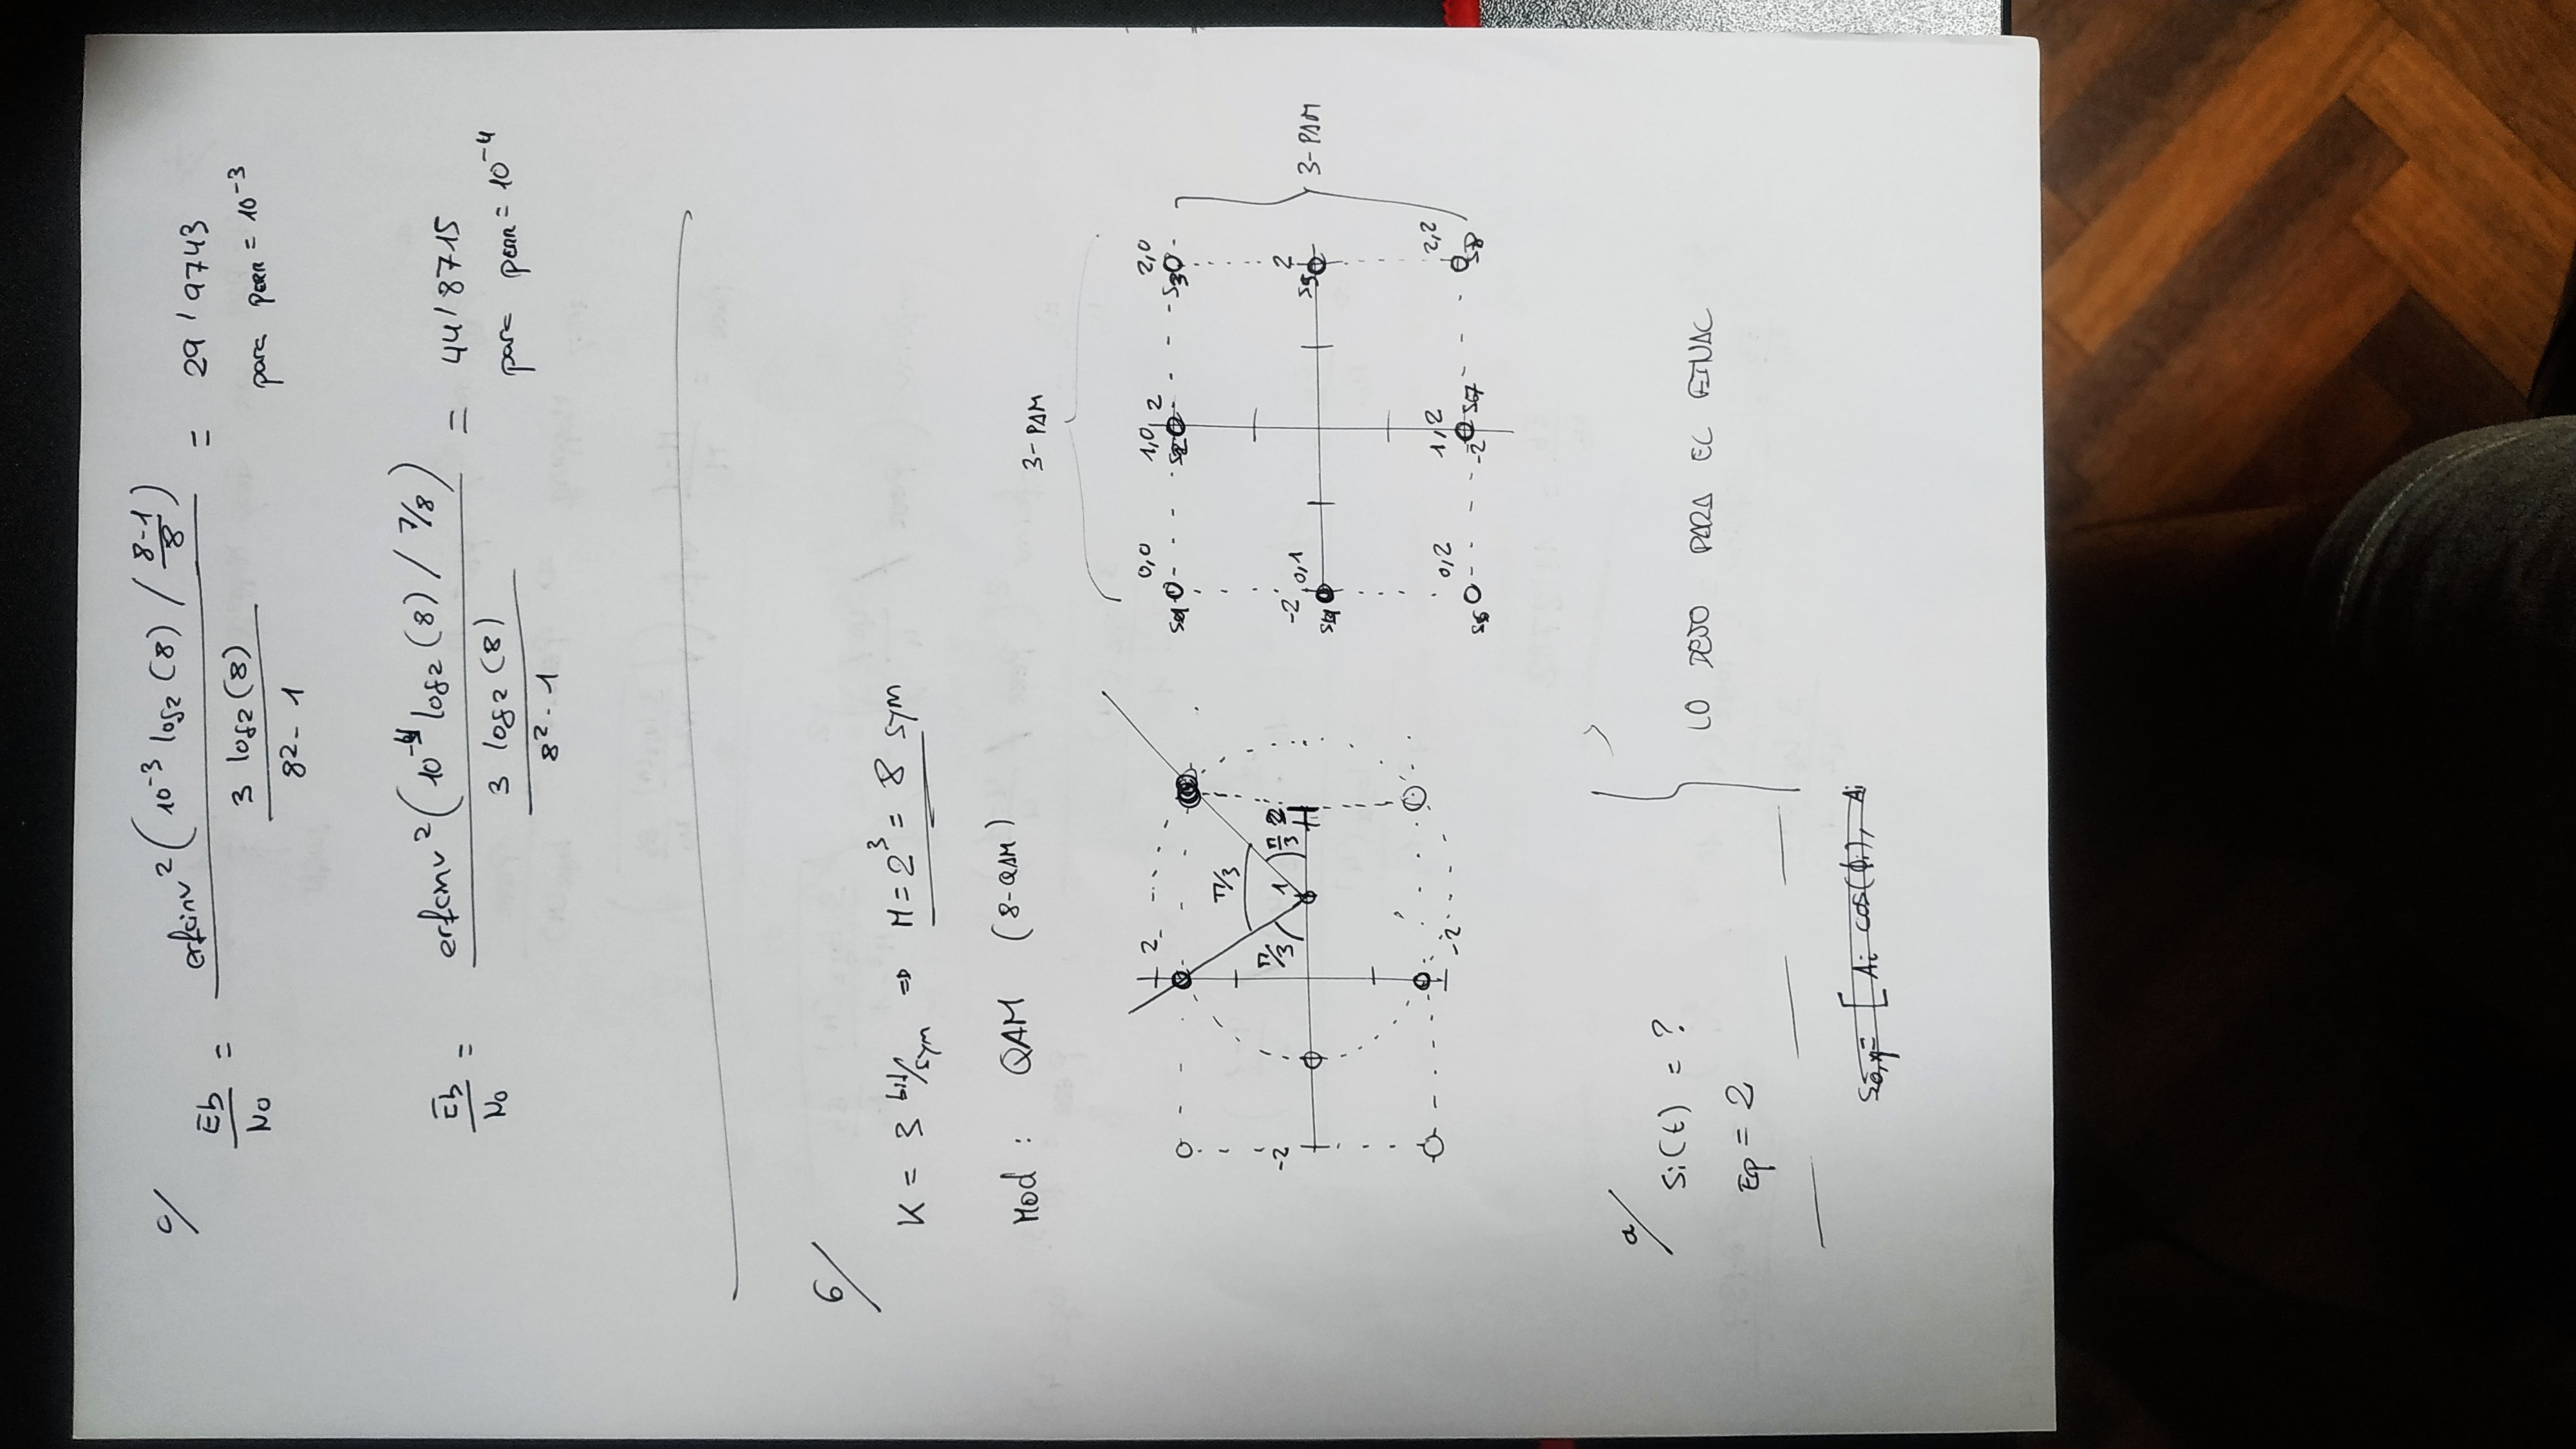 c/
Eb/N0 = erfcinv²(10⁻³ log₂(8) / (8-1)/8) / (3 log₂(8) / 8²-1) = 29,9743
para PERR = 10⁻³
Eb/N0 = erfcinv²(10⁻⁴ log₂(8) / 7/8) / (3 log₂(8) / 8²-1) = 44,8715
para PERR = 10⁻⁴
6/
K = 3 bit/sym ⇒ M = 2³ = 8 sym
Mod : QAM (8-QAM)
3-PAM
2
π/3
π/3
π/3
1
2
-2
-2
0,0
1,0
2
2,0
S1
S2
S3
-2
0,1
2
S4
S5
0,2
1,2
-2
2,2
S6
S7
S8
3-PAM
a/
Si(t) = ?
Ep = 2
LO DEJO PARA EL FINAL
[Ai cos(ϕi), Ai